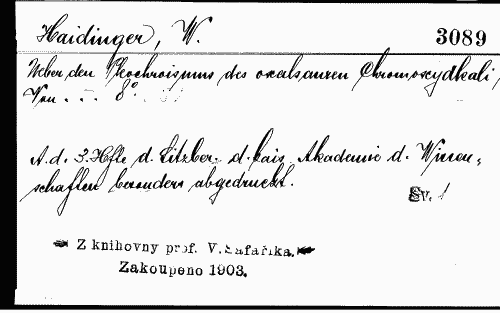 Haidinger, W.
3089
Ueber den Pleochroismus des oxalsauren Chromoxydkali,
Von . . . 8°.
A. d. 3. Hfte d. Sitzber. d. kais. Akademie d. Wissen-
schaften besonders abgedruckt.
Sv. 1
Z knihovny prof. V. Šafaříka.
Zakoupeno 1903.